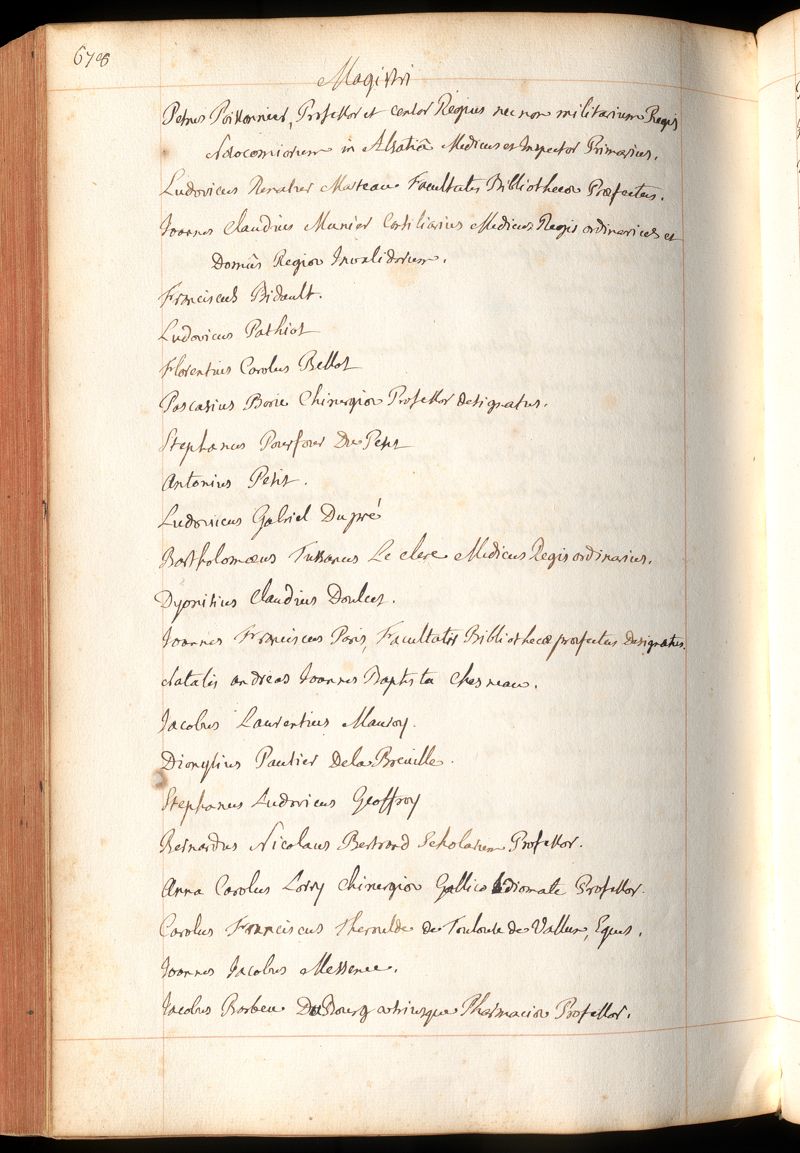 678
Magistri
Petrus Poissonnier, Professor et censor Regius nec non militarium Regis
Nosocomiorum in Alsatiâ Medicus et Inspector Primarius.
Ludovicus Renatus Marteau Facultatis Bibliothecæ Præfectus.
Joannes Claudius Munier Consiliarius Medicus Regis ordinarius et
Domûs Regiæ Invalidorum.
Franciscus Bidault.
Ludovicus Pathiot
Florentius Carolus Bellot
Pascasius Borie Chirurgiæ Professor designatus.
Stephanus Pourfour Du Petit
Antonius Petit.
Ludovicus Gabriel Dupré
Bartholomæus Tussanus Le clerc Medicus Regis ordinarius.
Dyonisius Claudius Doulcet.
Joannes Franciscus Paris, Facultatis Bibliothecæ præfectus Designatus.
Natalis andreas Joannes Baptista Chesneau.
Jacobus Laurentius Mauroy.
Dionysius Pautier De la Breuille.
Stephanus Ludovicus Geoffroy
Bernardus Nicolaus Bertrand Scholarum Professor.
Anna Carolus Lorry Chirurgiæ Gallico Idiomate Professor.
Carolus Franciscus Theroulde de Toulouse de Vallun, Eques.
Joannes Jacobus Messence.
Jacobus Barbeu DuBourg utriusque Pharmaciæ Professor.